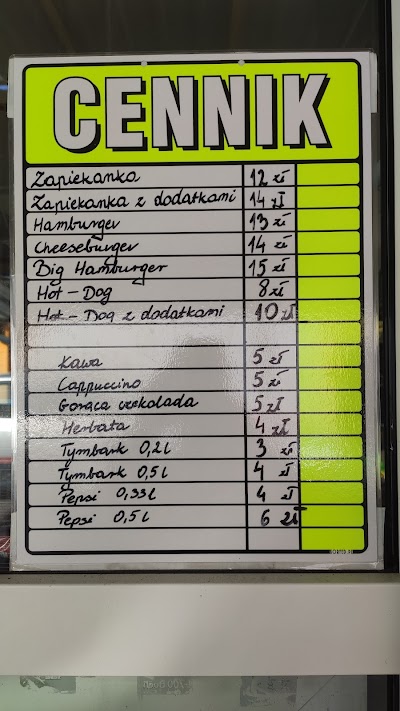 CENNIK
Zapiekanka 12 zł
Zapiekanka z dodatkami 14 zł
Hamburger 13 zł
Cheeseburger 14 zł
Big Hamburger 15 zł
Hot - Dog 8 zł
Hot - Dog z dodatkami 10 zł
Kawa 5 zł
Cappuccino 5 zł
Gorąca czekolada 5 zł
Herbata 4 zł
Tymbark 0,2 l 3 zł
Tymbark 0,5 l 4 zł
Pepsi 0,33 l 4 zł
Pepsi 0,5 l 6 zł